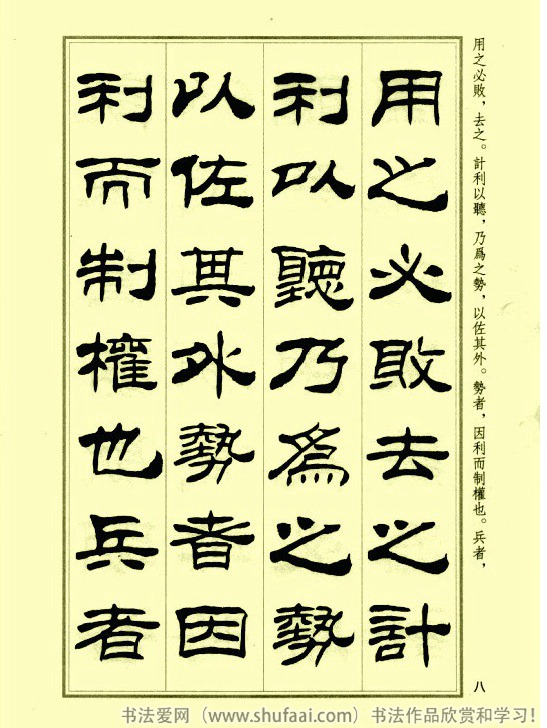 用之必敗，去之。計利以聽，乃爲之勢，以佐其外。勢者，因利而制權也。兵者，
用之必敗去之計
利以聽乃爲之勢
以佐其外勢者因
利而制權也兵者
八
书法爱网（www.shufaai.com）书法作品欣赏和学习！